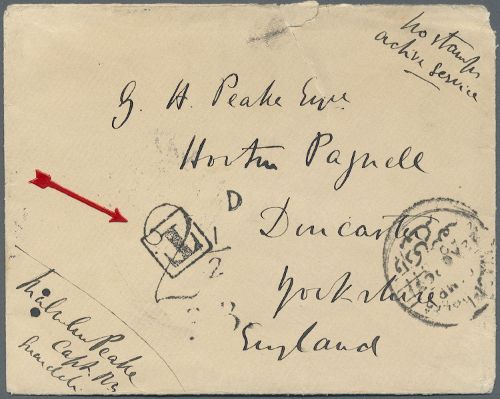 No stamps
active service
G. H. Peake Esqre
Hooton Pagnell
T
D
1/2
Doncaster
Yorkshire
England
Malcolm Peake
Capt. RA